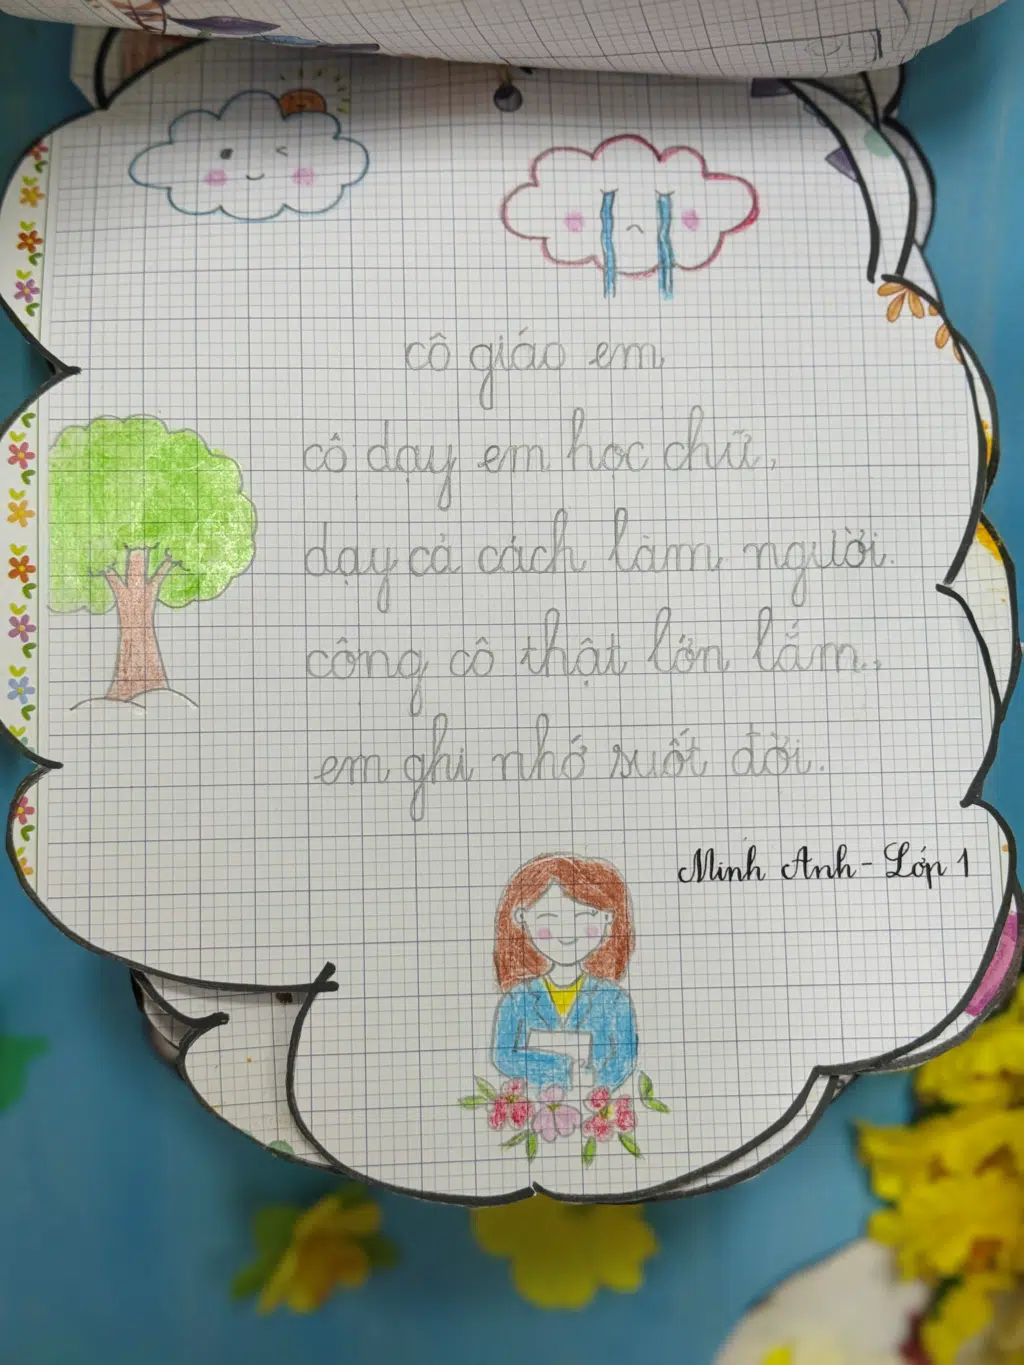 cô giáo em
cô dạy em học chữ,
dạy cả cách làm người.
công cô thật lớn lắm,
em ghi nhớ suốt đời.
Minh Anh - Lớp 1